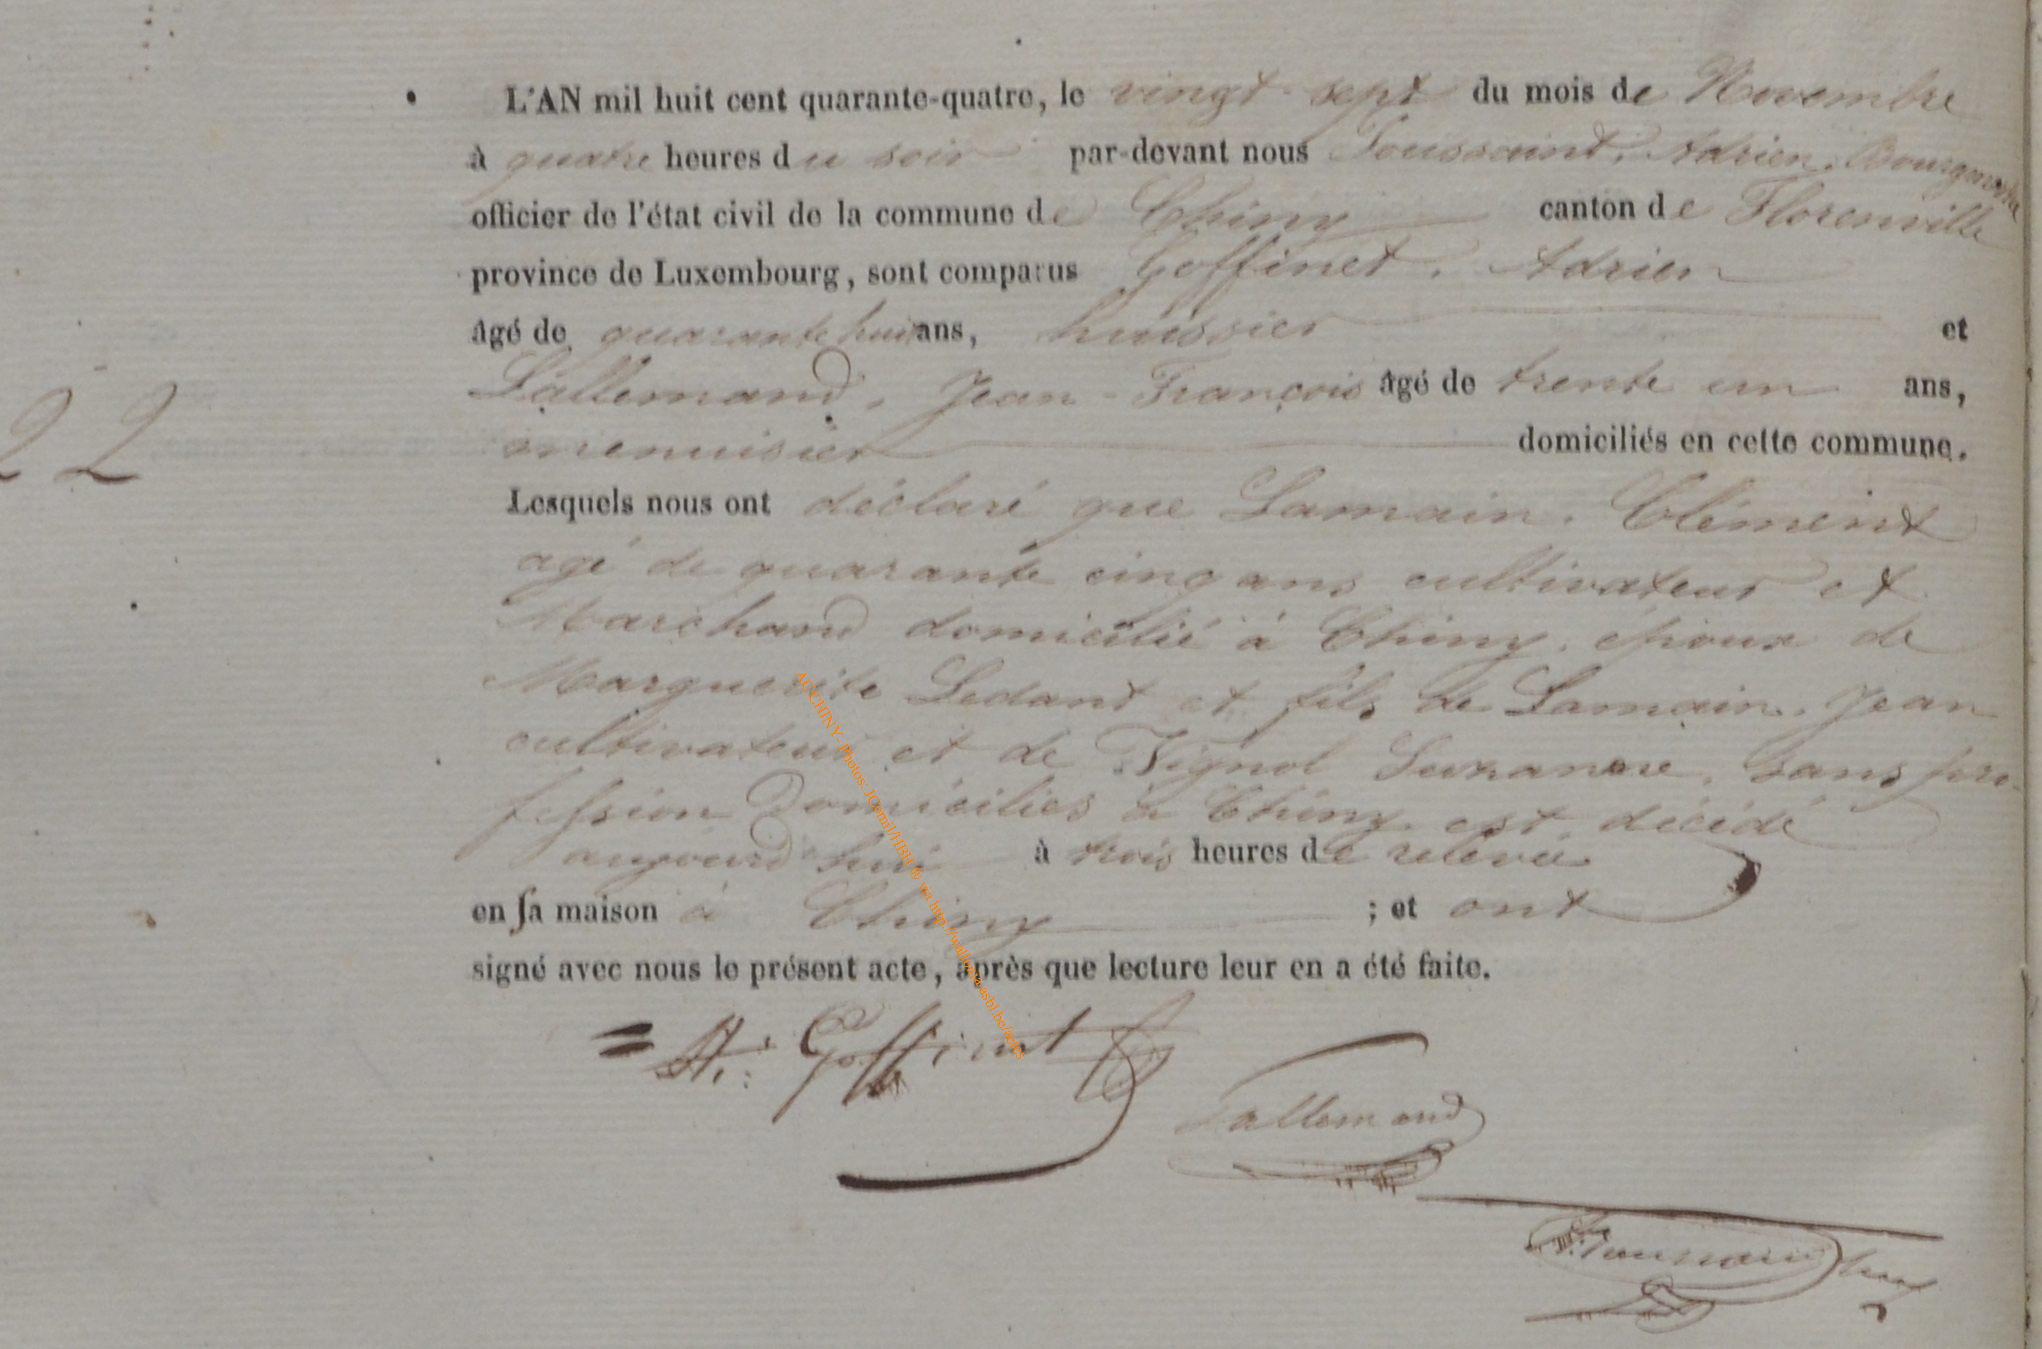 L'AN mil huit cent quarante-quatre, le vingt-sept du mois de Novembre
à quatre heures du soir par-devant nous Toussaint, Adrien, Bourgmestre
officier de l'état civil de la commune de Chiny canton de Florenville
province de Luxembourg, sont comparus Goffinet, Adrien
âgé de quarante huit ans, huissier et
Lallemand, Jean-François âgé de trente un ans,
22
menuisier domiciliés en cette commune.
Lesquels nous ont déclaré que Lamain, Clément
agé de quarante cinq ans cultivateur et
Marchand domicilié à Chiny, époux de
Marguerite Ledant et fils de Lamain, Jean
cultivateur et de Tignol Suzanne, sans pro-
fession domiciliés à Chiny est décédé
aujourd'hui à trois heures de relevée
en sa maison à Chiny ; et ont
signé avec nous le présent acte, après que lecture leur en a été faite.
A. Goffinet
Lallemand
Toussaint